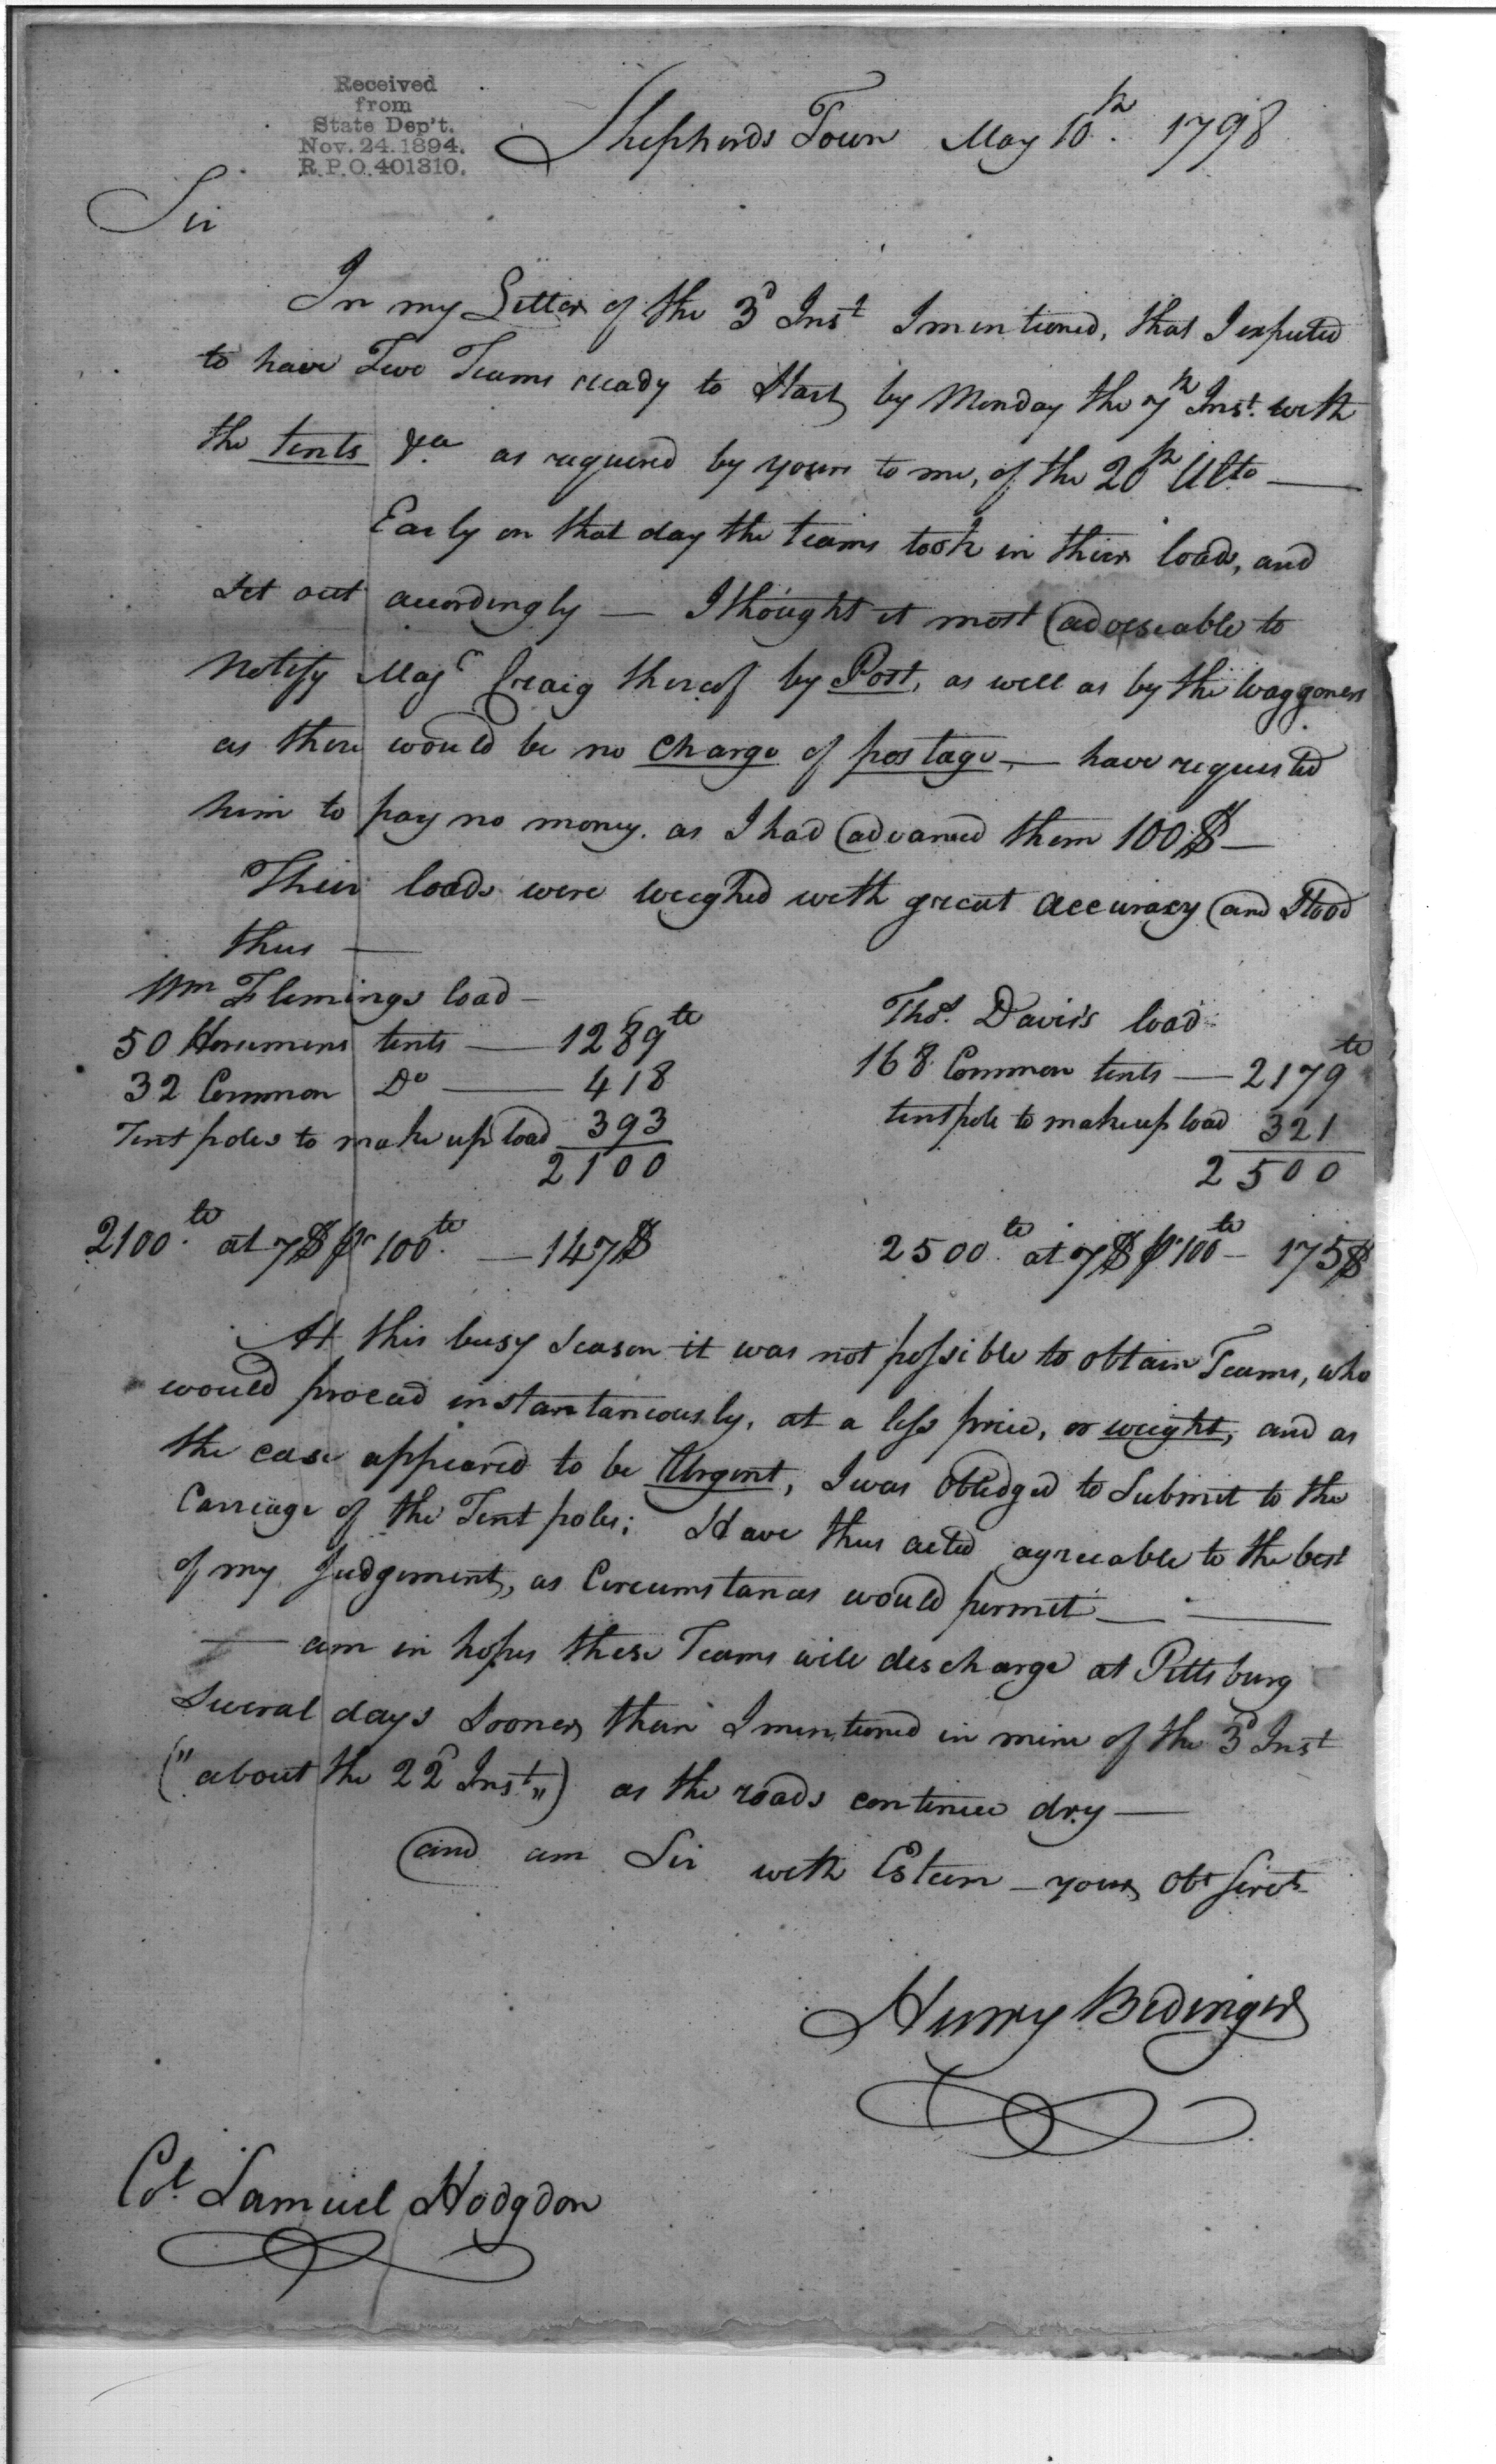 Received
from
State Dep't.
Nov. 24. 1894.
R.P.O. 401310.
Shepherds Town May 10th. 1798
Sir
In my Letter of the 3d Inst I mentioned, that I expected
to have Two Teams ready to Start by Monday the 7th Inst. with
the tents &ca as required by yours to me, of the 20th Ulto —
Early on that day the teams took in their loads, and
Set out accordingly — I thought it most adviseable to
Notify Majr Craig thereof by Post, as well as by the Waggoners
as there would be no charge of postage, — have requested
him to pay no money. as I had advanced them 100 $ —
Their loads were weighed with great accuracy and Stood
thus —
Wm Flemings load —
50 Horsemens tents — 1289 lb
32 Common Do — 418
Tent poles to make up load 393
2100
2100 lb. at 7$ pr 100 lb. — 147$
Thos. Davis's load
168 Common tents — 2179 lb
tent pole to make up load 321
2500
2500 lb. at 7$ pr 100 lb — 175$
At this busy Season it was not possible to obtain Teams, who
would proceed instantaneously, at a less price, or weight, and as
the case appeared to be Urgent, I was obledged to Submit to the
Carriage of the Tent poles; Have thus acted agreeable to the best
of my Judgement, as Circumstances would permit — —
— am in hopes these Teams will discharge at Pittsburg
Several days Sooner than I mentioned in mine of the 3d Inst
("about the 22d Inst") as the roads continue dry —
and am Sir with Esteem — yours obt Servt
Henry Bedinger
Col. Samuel Hodgdon